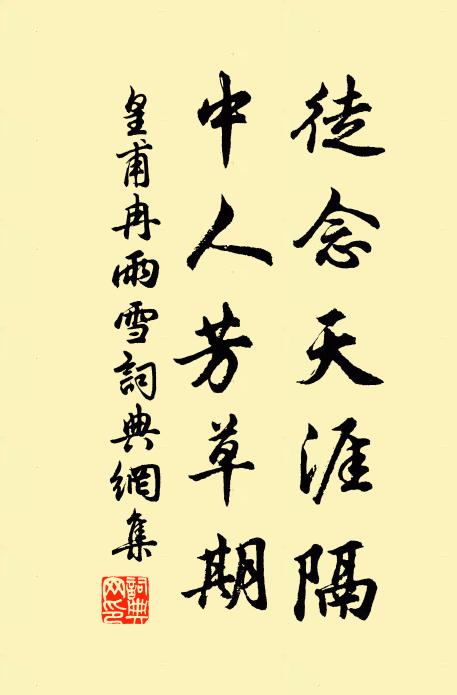 徒念天涯隔
中人芳草期
皇甫冉雨雪詞典網集
詞典
网印